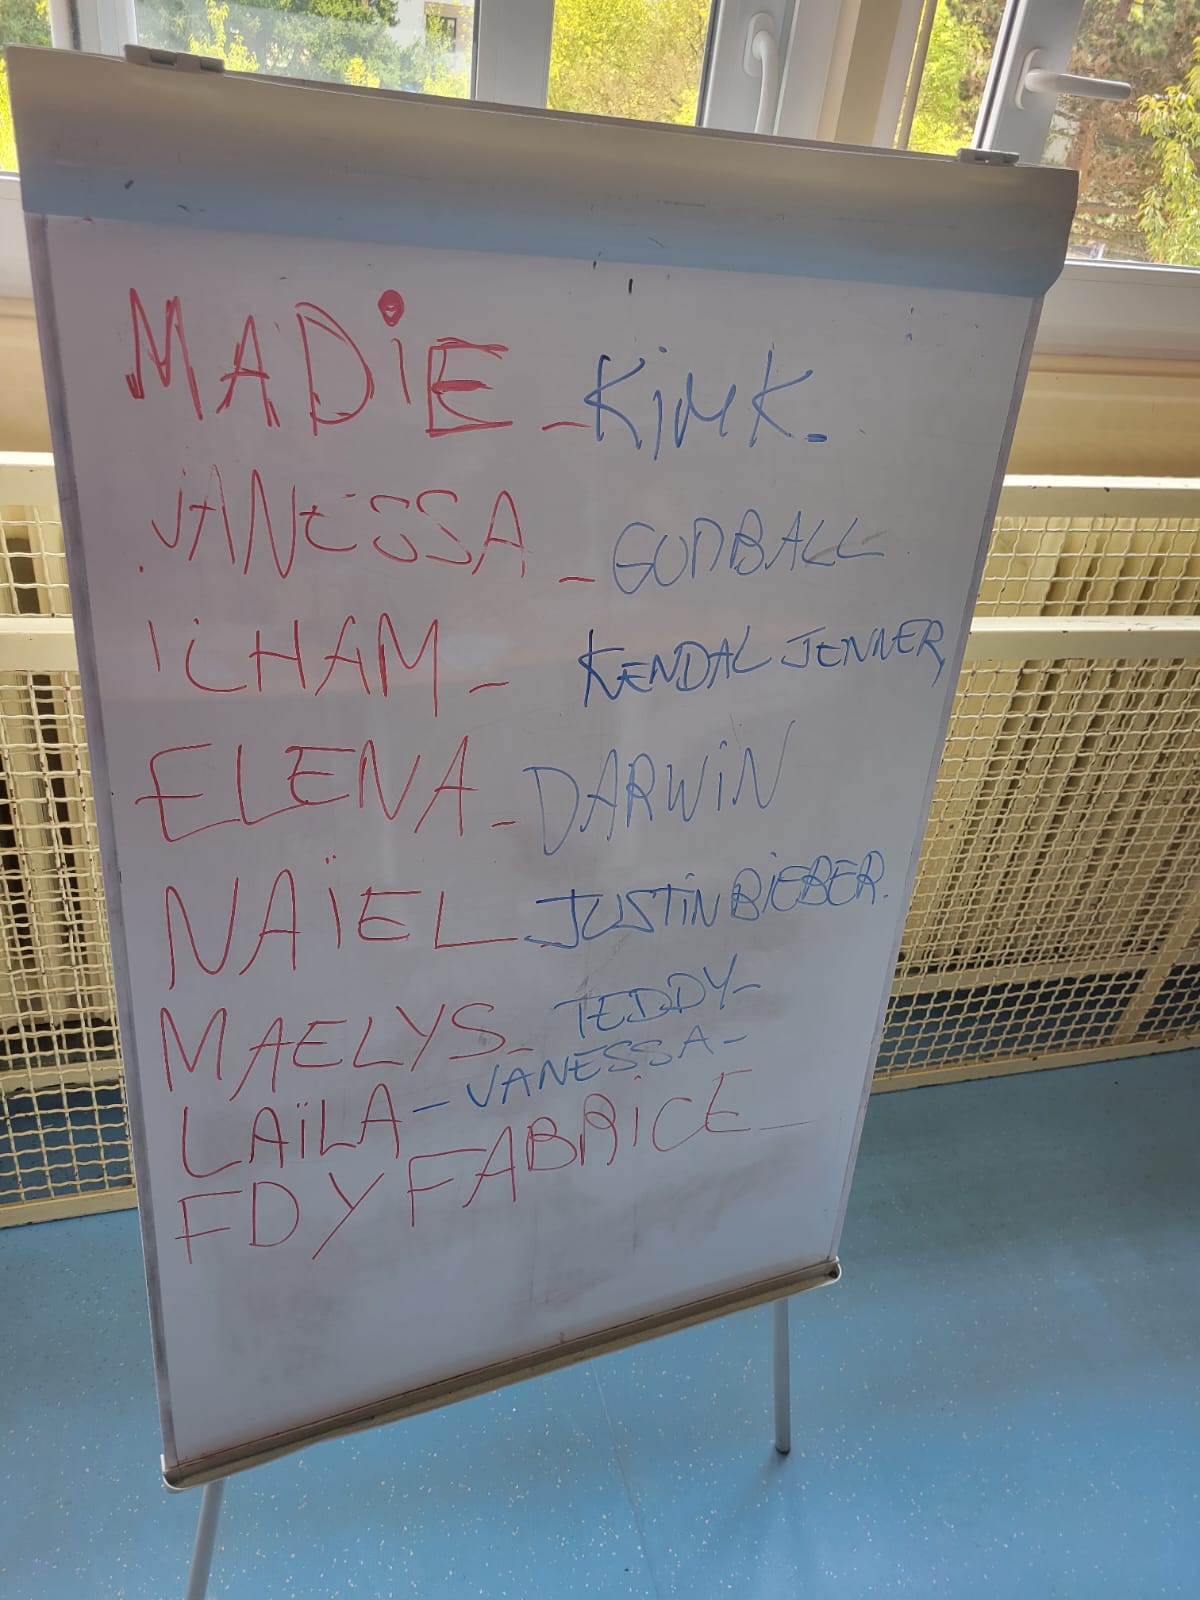 MADIE - KIM K.
VANESSA - GODBALL
ILHAM - KENDAL JENNER
ELENA - DARWIN
NAÏEL - JUSTIN BIEBER.
MAELYS - TEDDY -
LAÏLA - VANESSA -
FDY FABRICE -